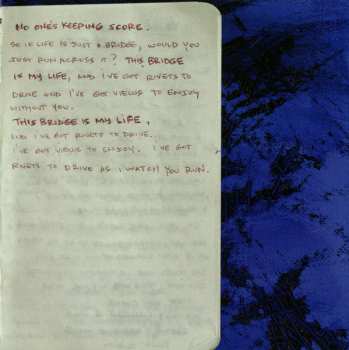 NO ONE'S KEEPING SCORE.
SO IF LIFE IS JUST A BRIDGE, WOULD YOU
JUST RUN ACROSS IT? THIS BRIDGE
IS MY LIFE, AND I'VE GOT RIVETS TO
DRIVE AND I'VE GOT VIEWS TO ENJOY
WITHOUT YOU.
THIS BRIDGE IS MY LIFE,
AND I'VE GOT RIVETS TO DRIVE.
I'VE GOT VIEWS TO ENJOY. I'VE GOT
RIVETS TO DRIVE AS I WATCH YOU RUN.